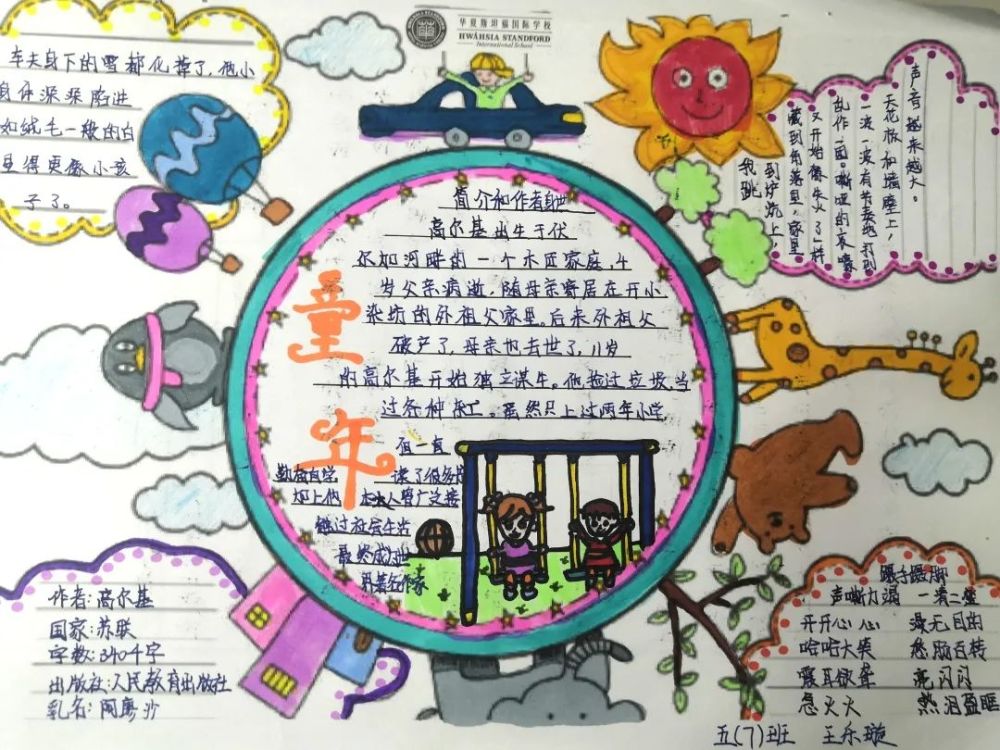 华夏斯坦福国际学校
HWÁHSIA STANDFORD
International School
车夫身下的雪都化掉了,他小
身体深深陷进
如绒毛一般的白
里得更像小孩
子了。
声音越来越大。
天花板和墙壁上,
一波一波有节奏地打到
乱作一团。嘶哑的哀嚎
又开始像失火了一样
藏到角落里,家里
到炉炕上,
我跳
童年
简介和作者身世
高尔基出生于伏
尔加河畔的一个木匠家庭,4
岁父亲病逝,随母亲寄居在开小
染坊的外祖父家里。后来外祖父
破产了,母亲也去世了,11岁
的高尔基开始独立谋生。他捡过垃圾,当
过各种杂工。虽然只上过两年小学,
但一直
勤奋自学 读了很多书
加上他 本人曾广泛接
触过社会生活
最终成为
著名作家
作者:高尔基
国家:苏联
字数:3404千字
出版社:人民教育出版社
乳名:阿廖沙
蹑手蹑脚
声嘶力竭 一清二楚
开开心心 漫无目的
哈哈大笑 愁肠百转
震耳欲聋 亮闪闪
急火火 热泪盈眶
五(7)班 王乐璇